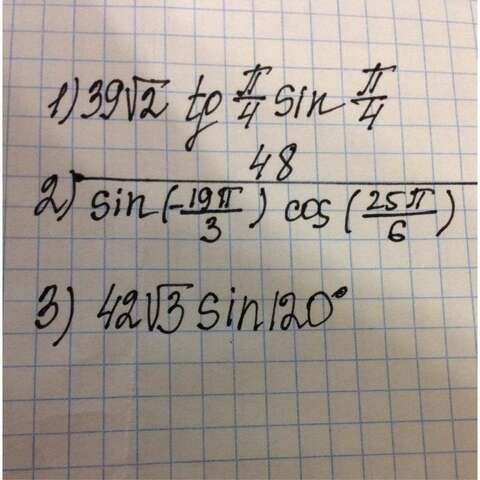 1) 39√2 tg π/4 sin π/4
2) 48 / sin(-19π/3) cos(25π/6)
3) 42√3 sin120°